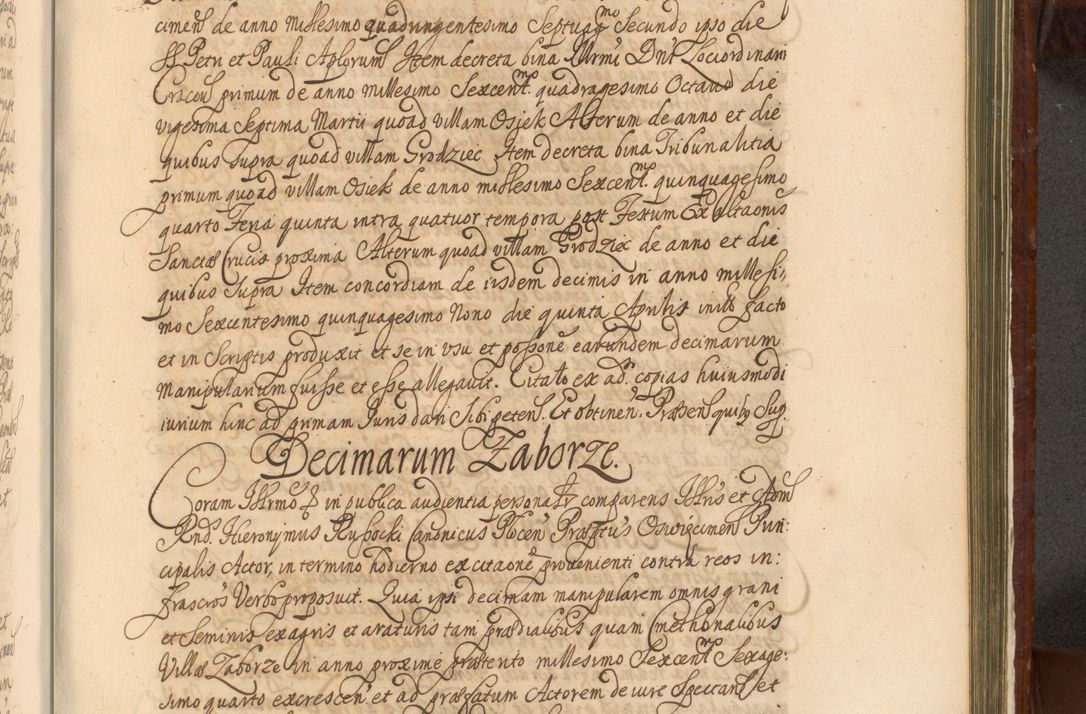 cimen̄ de anno millesimo quadringentesimo Septuagmo Secundo ipso die
SS Petri et Pauli Aplorum Item decreta bina Illrmi Dni Lociordinarii
Cracoen̄ primum de anno millesimo Sexcentmo quadragesimo Octavo die
vigesima Septima Martii quoad villam Osiek Alterum de anno et die
quibus supra quoad villam Grodziec Item decreta bina Tribunalitia
primum quoad villam Osiek de anno millesimo Sexcentmo quinquagesimo
quarto Feria quinta intra quatuor tempora post Festum Exaltaonis
Sanctæ Crucis proxima Alterum quoad villam Grodziec de anno et die
quibus supra Item concordiam de iisdem decimis in anno millesi-
mo Sexcentesimo quinquagesimo Nono die quinta Aprilis inito facto
et in Scriptis produxit et se in usu et possone earundem decimarum
Manipularium fuisse et esse allegavit. Citato ex ado copias huiusmodi
iurium hinc ad primam Iuris dari sibi peten̄. Et obtinen̄. Præsen̄ quibus sup
Decimarum Zaborze.
Coram Illrmo in publica audientia personalr comparens Illris et Adm
Rnd. Hieronymus Russocki Canonicus Plocen̄ Præptus Oswiecimen̄ Prin:
cipalis Actor, in termino hodierno ex citaone provenienti contra reos in:
frascros Verbo proposuit. Quia ipsi decimam manipularem omnis grani
et Seminis ex agris et araturis tam prædialibus quam Cmethonalibus
Villæ Zaborze in anno proxime prætento millesimo Sexcentmo Sexage:
simo quarto excrescen̄ et ad præfatum Actorem de iure Spectan̄ et